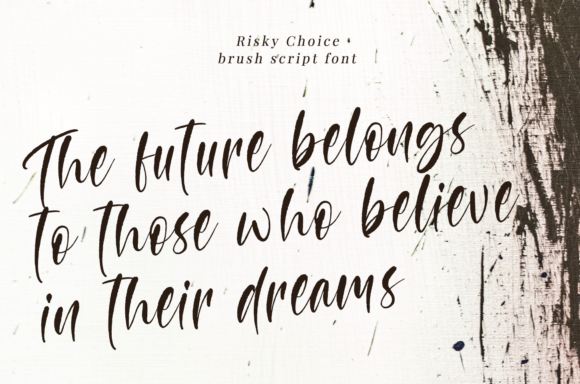 Risky Choice
brush script font
The future belongs
to those who believe
in their dreams